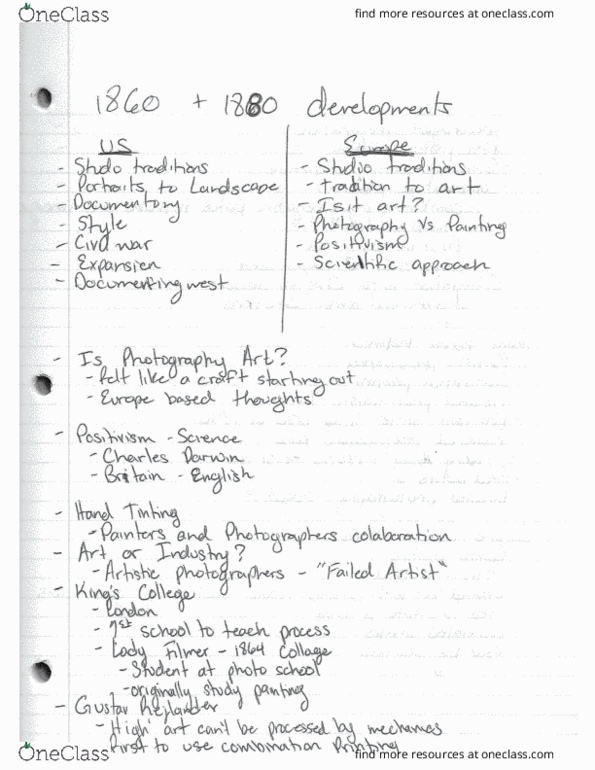 OneClass
find more resources at oneclass.com
1860 + 1880 developments
US
- Studo traditions
- Portraits to Landscape
- Documentory
- Style
- Civil war
- Expansion
- Documenting west
Europe
- Studio traditions
- tradition to art
- Is it art?
- Photography Vs Painting
- Positivism
- Scientific approach
- Is Photography Art?
- felt like a craft starting out
- Europe based thoughts
- Positivism - Science
- Charles Darwin
- Britain - English
- Hand Tinting
- Painters and Photographers colaboration
- Art or Industry?
- Artistic photographers - "Failed Artist"
- King's College
- London
- 1st school to teach process
- Lady Filmer - 1864 Collage
- Student at photo school
- originally study painting
- Gustav Rejlander
- 'High' art can't be processed by mechanics
first to use combination Printing
OneClass
find more resources at oneclass.com